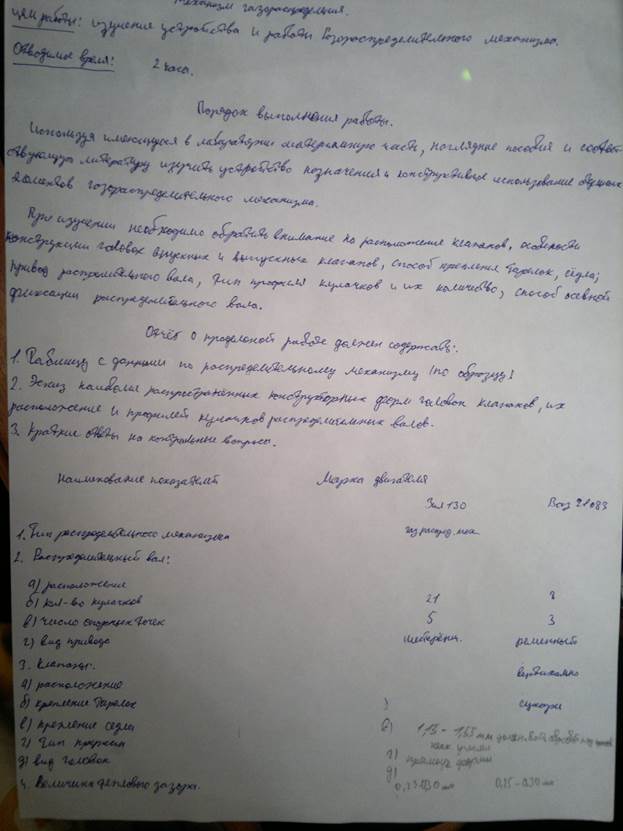 Механизм газораспределения.
Цель работы: изучение устройства и работы газораспределительного механизма.
Отводимое время: 2 часа.
Порядок выполнения работы.
Используя имеющуюся в лаборатории материальную часть, наглядные пособия и соответ-
ствующую литературу изучить устройство назначения и конструктивное использование
элементов газораспределительного механизма.
При изучении необходимо обратить внимание на расположение клапанов, особености
конструкции головок впускных и выпускных клапанов, способ крепления тарелок, седла;
привод распределительного вала, тип профиля кулачков и их количество, способ осевой
фиксации распределительного вала.
Отчёт о проделоной работе должен содержать:
1. Таблицу с данными по распределительному механизму (по образцу)
2. Эскиз наиболее распространённых конструкторных форм головок клапанов, их
расположение и профилей кулачков распределительных валов.
3. Краткие ответы на контрольные вопросы.
Наименование показателей Марка двигателя
Зил 130 Ваз 21083
1. Тип распределительного механизма газораспред. мех.
2. Распределительный вал:
а) расположение
б) кол-во кулачков 21 8
в) число опорных точек 5 3
г) вид привода шестеренч. ременный
3. Клапаны: вертикально
а) расположение
б) крепление тарелок сухари
в) крепление седла в) 1,13 - 1,65 mm
г) тип пружин г)
д) вид головок д)
4. Величина теплового зазора. 0,25-0,30 мм 0,15-0,30 мм